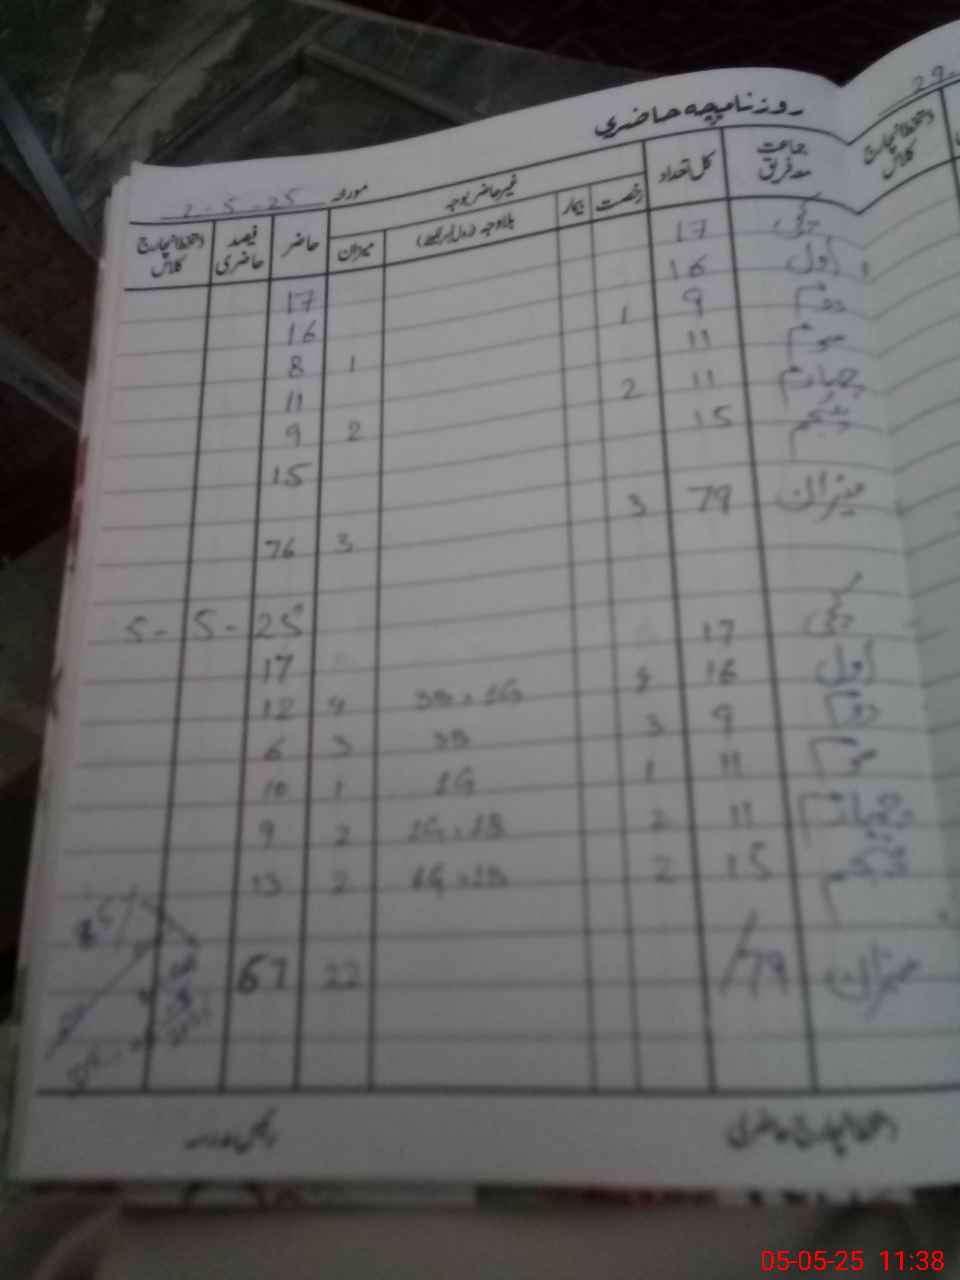 روزنامچہ حاضری
29-
مورخہ 2-5-25
جماعت مع فریق کل تعداد غیر حاضر بوجہ حاضر فیصد حاضری دستخط انچارج کلاس
رخصت بیمار بلاوجہ میزان
دستخط انچارج کلاس
17 17
اول 16 16
دوم 9 1 1 8
سوم 11 11
چہارم 11 2 2 9
پنجم 15 15
میزان 79 3 3 76
5-5-25
17 17
اول 16 4 3B, 1G 4 12
دوم 9 3 3B 3 6
سوم 11 1 1G 1 10
چہارم 11 2 1G, 1B 2 9
پنجم 15 2 1G, 1B 2 13
میزان 79 22 67
دستخط انچارج حاضری
05-05-25 11:38